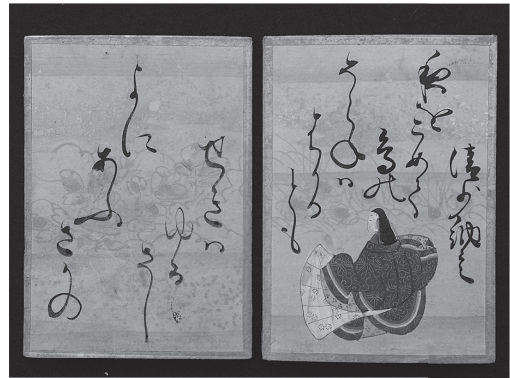 清少納言
夜をこめて
鳥の
そらねハ
はかる
とも
よに
あふ
さかの
せきハ
ゆる
さし